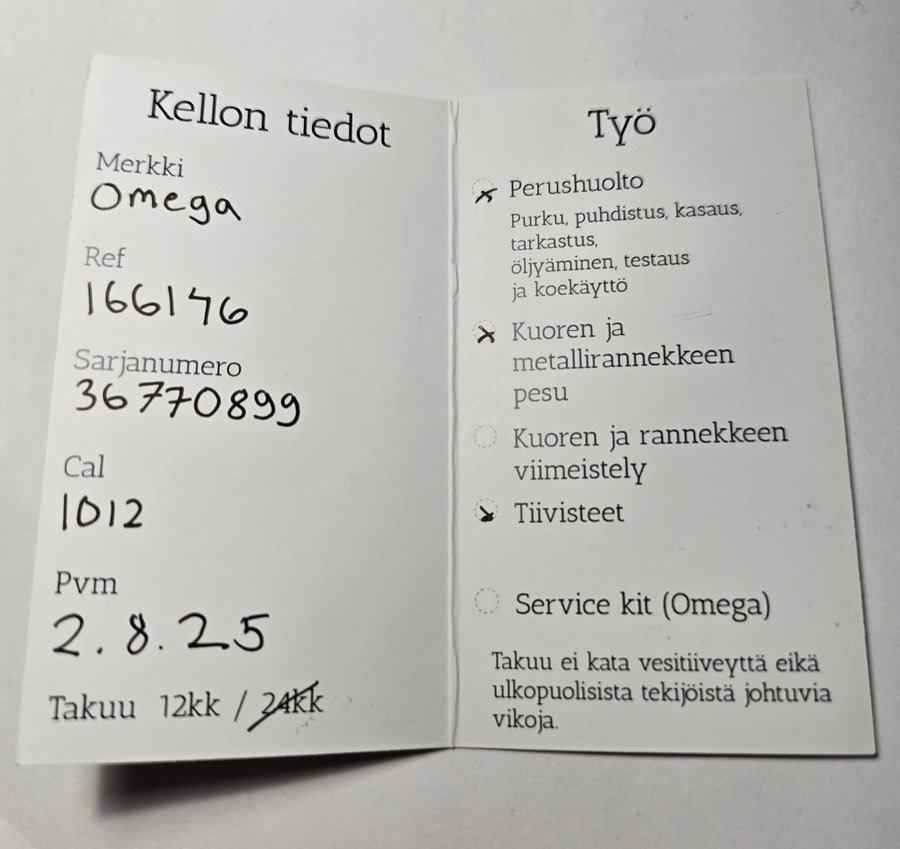 Kellon tiedot
Merkki
Omega
Ref
166146
Sarjanumero
36770899
Cal
1012
Pvm
2.8.25
Takuu 12kk / 24kk
Työ
Perushuolto
Purku, puhdistus, kasaus,
tarkastus,
öljyäminen, testaus
ja koekäyttö
Kuoren ja
metallirannekkeen
pesu
Kuoren ja rannekkeen
viimeistely
Tiivisteet
Service kit (Omega)
Takuu ei kata vesitiiveyttä eikä
ulkopuolisista tekijöistä johtuvia
vikoja.